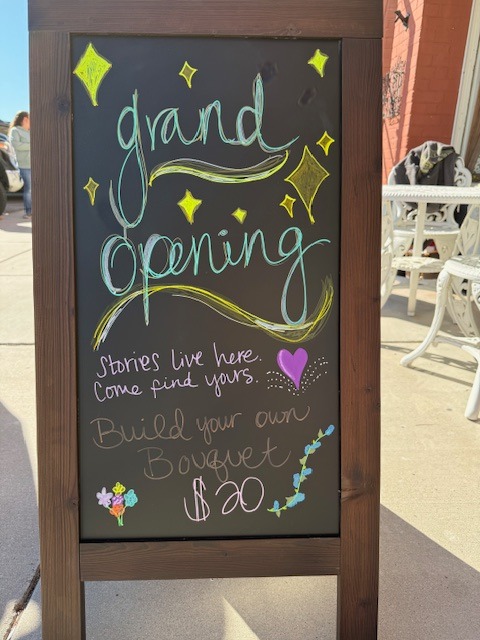 grand
opening
Stories live here.
Come find yours.
Build your own
Bouquet
$20